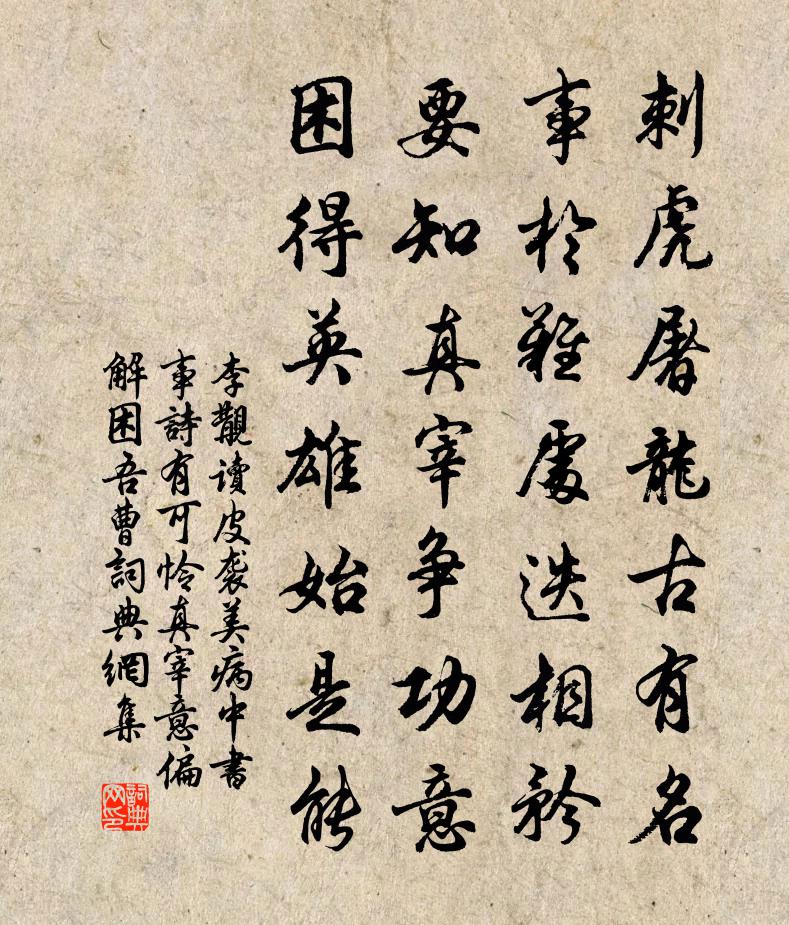 刺虎屠龍古有名
事於難處迭相矜
要知真宰争功意
困得英雄始是能
李覯讀皮袭美病中書
事詩有可怜真宰意偏
解困吾曹詞典網集
詞典
网印